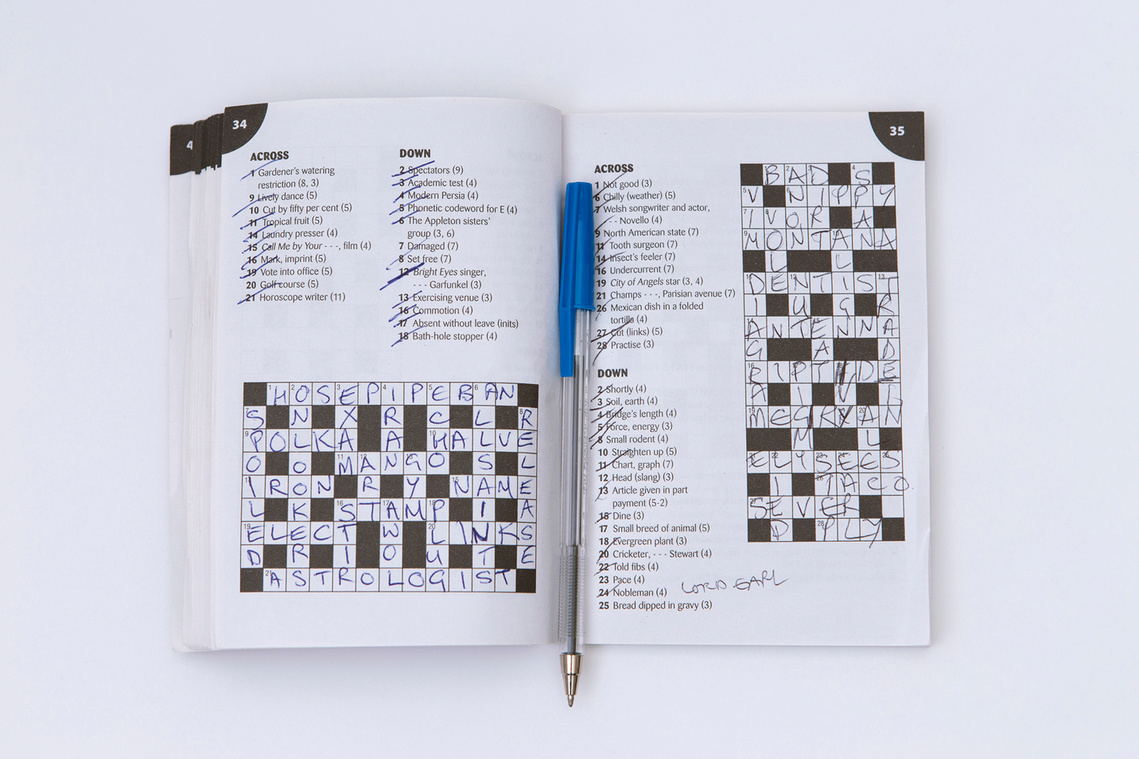 34
ACROSS
1 Gardener's watering
restriction (8, 3)
9 Lively dance (5)
10 Cut by fifty per cent (5)
11 Tropical fruit (5)
14 Laundry presser (4)
15 Call Me by Your - - -, film (4)
16 Mark, imprint (5)
19 Vote into office (5)
20 Golf course (5)
21 Horoscope writer (11)
DOWN
2 Spectators (9)
3 Academic test (4)
4 Modern Persia (4)
5 Phonetic codeword for E (4)
6 The Appleton sisters'
group (3, 6)
7 Damaged (7)
8 Set free (7)
12 Bright Eyes singer,
- - - Garfunkel (3)
13 Exercising venue (3)
16 Commotion (4)
17 Absent without leave (inits)
18 Bath-hole stopper (4)
HOSEPIPEBAN
S N X R C L R
POLKA A HALVE
O O MANGO S L
IRON R Y NAME
L K STAMP I A
ELECT W LINKS
D R I O U T E
ASTROLOGIST
4
35
ACROSS
1 Not good (3)
6 Chilly (weather) (5)
7 Welsh songwriter and actor,
- - Novello (4)
9 North American state (7)
11 Tooth surgeon (7)
14 Insect's feeler (7)
16 Undercurrent (7)
19 City of Angels star (3, 4)
21 Champs - - -, Parisian avenue (7)
26 Mexican dish in a folded
tortilla (4)
27 Cut (links) (5)
28 Practise (3)
DOWN
2 Shortly (4)
3 Soil, earth (4)
4 Bridge's length (4)
5 Force, energy (3)
8 Small rodent (4)
10 Straighten up (5)
11 Chart, graph (7)
12 Head (slang) (3)
13 Article given in part
payment (5-2)
15 Dine (3)
17 Small breed of animal (5)
18 Evergreen plant (3)
20 Cricketer, - - - Stewart (4)
22 Told fibs (4)
23 Pace (4)
24 Nobleman (4) LORD EARL
25 Bread dipped in gravy (3)
BAD S
V NIPPY
IVOR A A
MONTANA
L L
DENTIST
I U G R
ANTENNA
G A D
RIPTIDE
A I V
MEGRYAN
M L
ELYSEES
I TACO
SEVER
D PLY